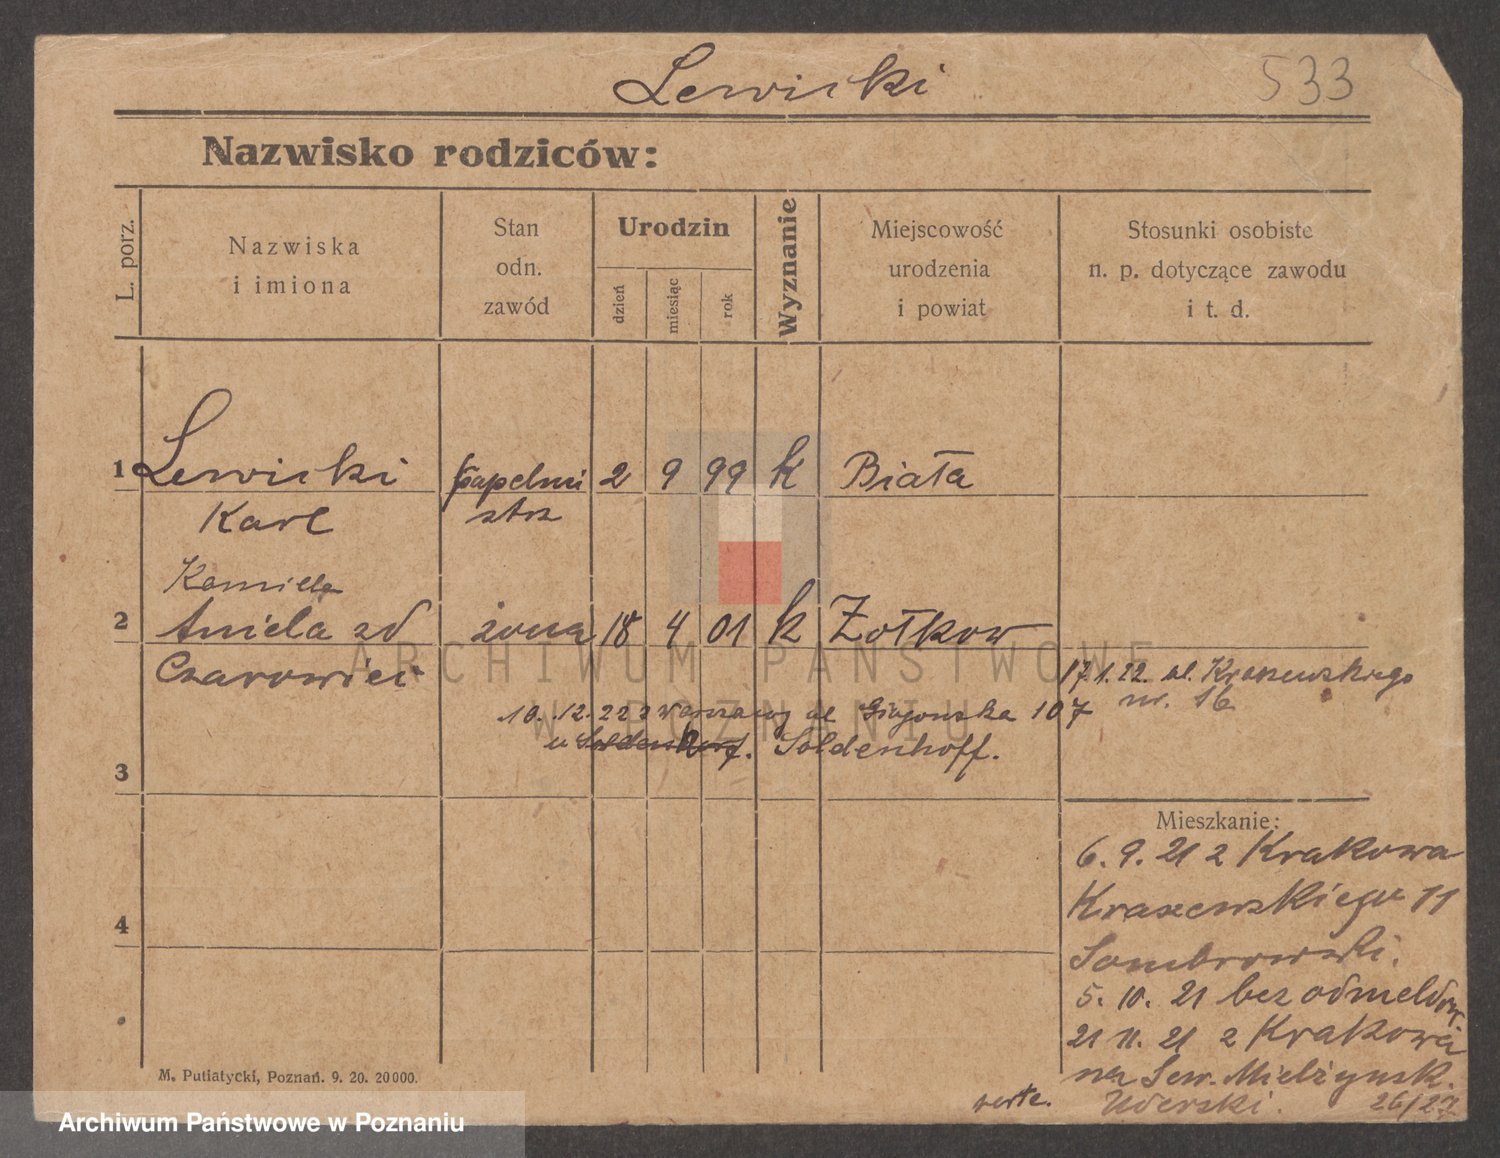 Lewicki
533
Nazwisko rodziców:
L. porz.
Nazwiska
i imiona
Stan
odn.
zawód
Urodzin
dzień
miesiąc
rok
Wyznanie
Miejscowość
urodzenia
i powiat
Stosunki osobiste
n. p. dotyczące zawodu
i t. d.
1 Lewicki kapelmi 2 9 99 k Biała
Karl strz
Kamilla
2 Aniela zd żona 18 4 01 k Żołkow
Czarowicz
17.1.22. ul. Kraszewskiego
nr. 16
10.12.22 z Warszawy ul 107
u Soldenhoff.
3
Mieszkanie:
6.9.21 z Krakowa
Kraszewskiego 11
Dombrowski.
4
5.10.21 bez odmeldow.
21 11. 21 z Krakowa
na Sew. Mielżynsk.
26/27
verte. Uderski.
M. Putiatycki, Poznań. 9. 20. 20000.
ARCHIWUM PAŃSTWOWE
W POZNANIU
Archiwum Państwowe w Poznaniu